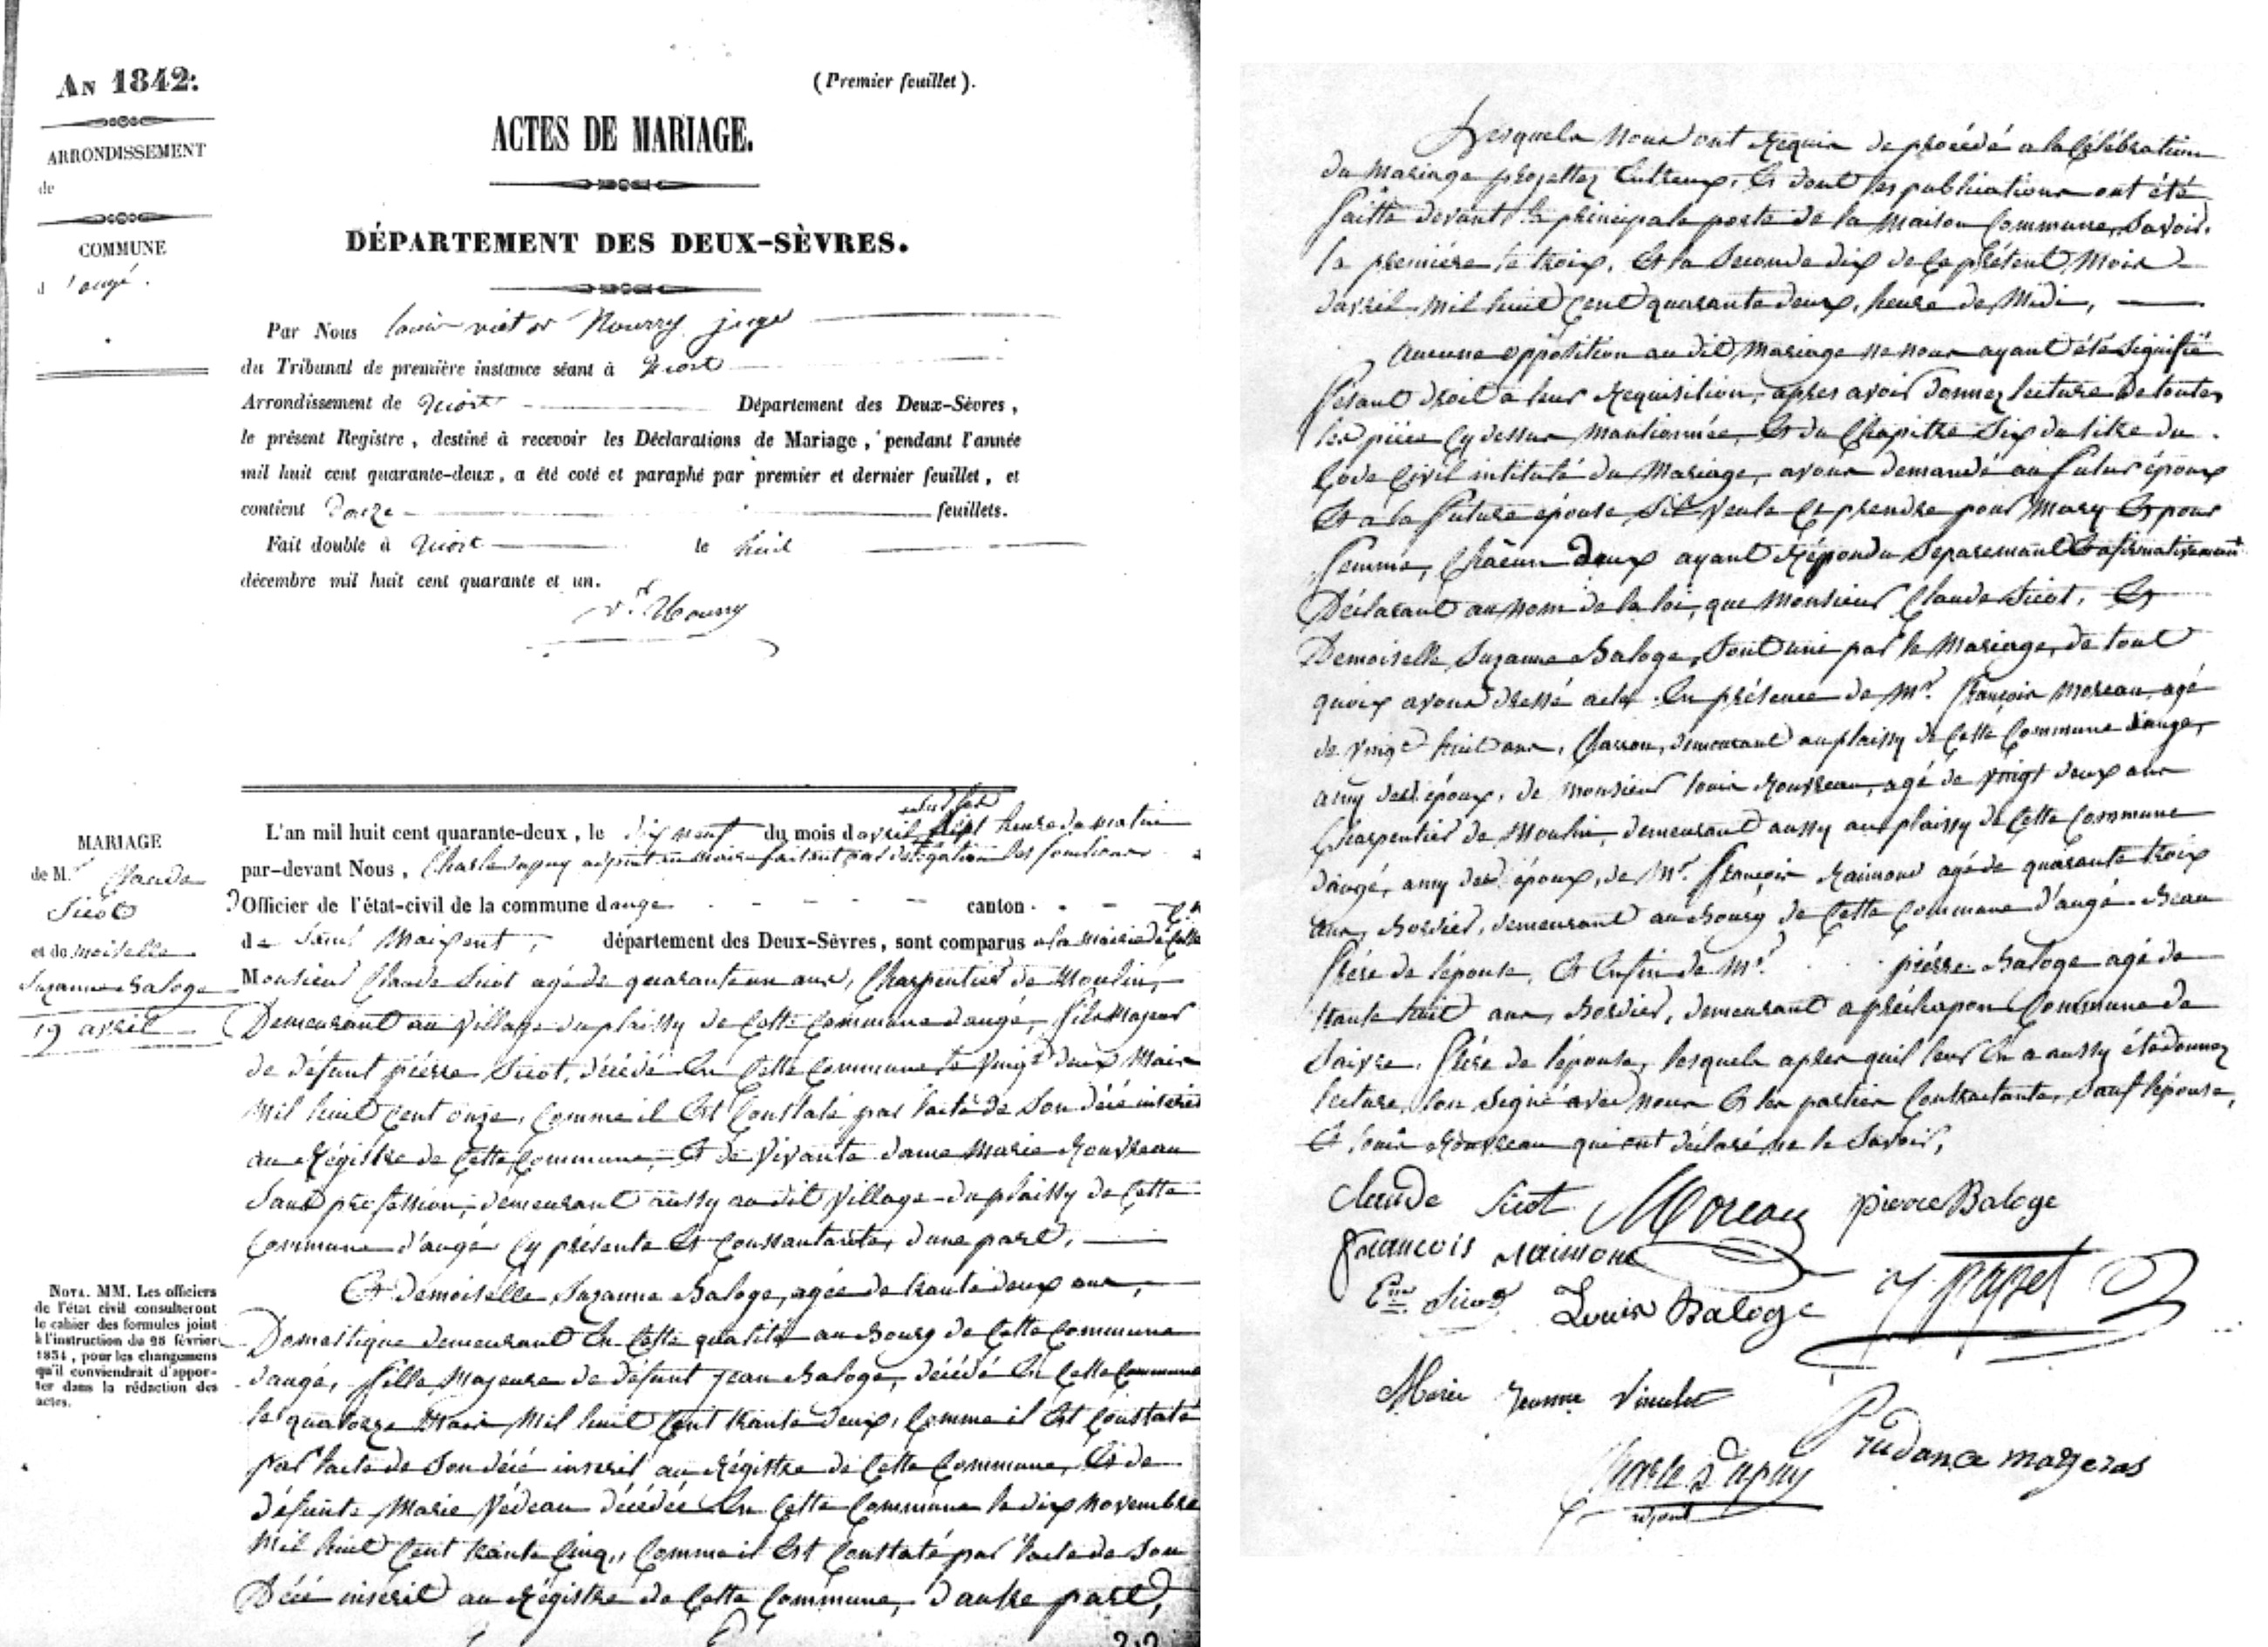 AN 1842:
(Premier feuillet).
ARRONDISSEMENT
de
COMMUNE
d'augé.
ACTES DE MARIAGE.
DÉPARTEMENT DES DEUX-SÈVRES.
Par Nous Louis victor Nourry juge
du Tribunal de première instance séant à Niort
Arrondissement de Niort Département des Deux-Sèvres,
le présent Registre, destiné à recevoir les Déclarations de Mariage, pendant l'année
mil huit cent quarante-deux, a été coté et paraphé par premier et dernier feuillet, et
contient Douze feuillets.
Fait double à Niort le huit
décembre mil huit cent quarante et un.
Vr Nourry
MARIAGE
de M.r Claude
Sicot
et de moiselle
Suzanne Baloge
19 avril
L'an mil huit cent quarante-deux, le dix neuf du mois d'avril, heure du matin
par-devant Nous, Charle dupuy adjoint au maire faisant par délégation les fonctions
d'Officier de l'état-civil de la commune d'auge canton
de Saint Maixent, département des Deux-Sèvres, sont comparus a la mairie de Cette
Monsieur Claude Sicot agé de quarante un ans, Charpentier de Moulin,
Demeurant au village du plaissy de Cette Commune daugé, fils Majeur
de défunt piérre Sicot, décédé En Cette Commune le vingt deux Mars
mil huit Cent onze, Comme il Est Constaté par l'acte de Son décé inscrit
au Régistre de Cette Commune, Et de vivante dame Marie Rouvreau
Sans profession, demeurant aussy au dit village du plaissy de Cette
Commune d'augé Cy présente Et Consantante, dune part,
Et demoiselle Suzanne Baloge, agée de trante deux ans,
Domestique demeurant En Cette qualité au Bourg de Cette Commune
daugé, fille Majeure de défunt jean Baloge, décédé En Cette Commune
le quatorze Mars Mil huit Cent trante deux, Comme il Est Constaté
par l'acte de Son décé inscrit au Régistre de Cette Commune, Et de
défunte Marie Védeau décédée En Cette Commune le dix novembre
Mil huit Cent trante Cinq, Comme il Est Constaté par l'acte de Son
Décé inscrit au Régistre de Cette Commune, d'autre part,
NOTA. MM. Les officiers
de l'état civil consulteront
le cahier des formules joint
à l'instruction du 28 février
1831, pour les changemens
qu'il conviendrait d'appor-
ter dans la rédaction des
actes.
Lesquels Nous ont Requis de procédé a la Célébration
du Mariage projettez Entreux, Et dont les publications ont été
faitte devant la principale porte de la Maison Commune, Savoir.
la premiére le troix, Et la Seconde dix de Ce présent Mois
davril mil huit Cent quarante deux, heure de Midi,
Aucune opposition au dit Mariage ne nous ayant été Signifié
fesant droit a leur Requisition, apres avoir donnez lecture de toutes
les piéce Cy dessus mantionnée, Et du Chapitre Six du titre du
Code Civil intitulé du Mariage, avons demandé au futur époux
Et a la future épouse Sil veule Ce prendre pour Mary Et pour
femme, Châcun deux ayant Répondu Separemant Et afirmativemant
Déclarant au nom de la loi, que Monsieur Claude Sicot, Et
Demoiselle Suzanne Baloge, Sont uni par le Mariage, de tout
quoix avons dressé acte. En présence de Mr. françois Moreau, agé
de vingt huit ans, Charron, demeurant au plaissy de Cette Commune d'auge,
amy des époux, de Monsieur louis Rouvreau, agé de vingt deux ans
Charpentier de Moulin, demeurant aussy au plaissy de Cette Commune
d'augé, amy des époux, de Mr. françois Raimond agé de quarante troix
ans, Bordier, demeurant au Bourg de Cette Commune d'augé. Beau
frére de l'épouse, Et Enfin de Mr. piérre Baloge agé de
trante huit ans, Bordier, demeurant a préchapon Commune de
Saivre, frére de l'épouse, lesquels apres quil leur En a aussy été donnez
lecture, son Signé avec nous Et les parties Contractante, Sauf l'épouse,
Et louis Rouvreau qui ont déclaré ne le Savoir,
Claude Sicot Moreau pierre Baloge
francois raimond
Enne Sicot Louis Baloge
Marie Jeanne
Prudance
Charle Dupuy
adjoint